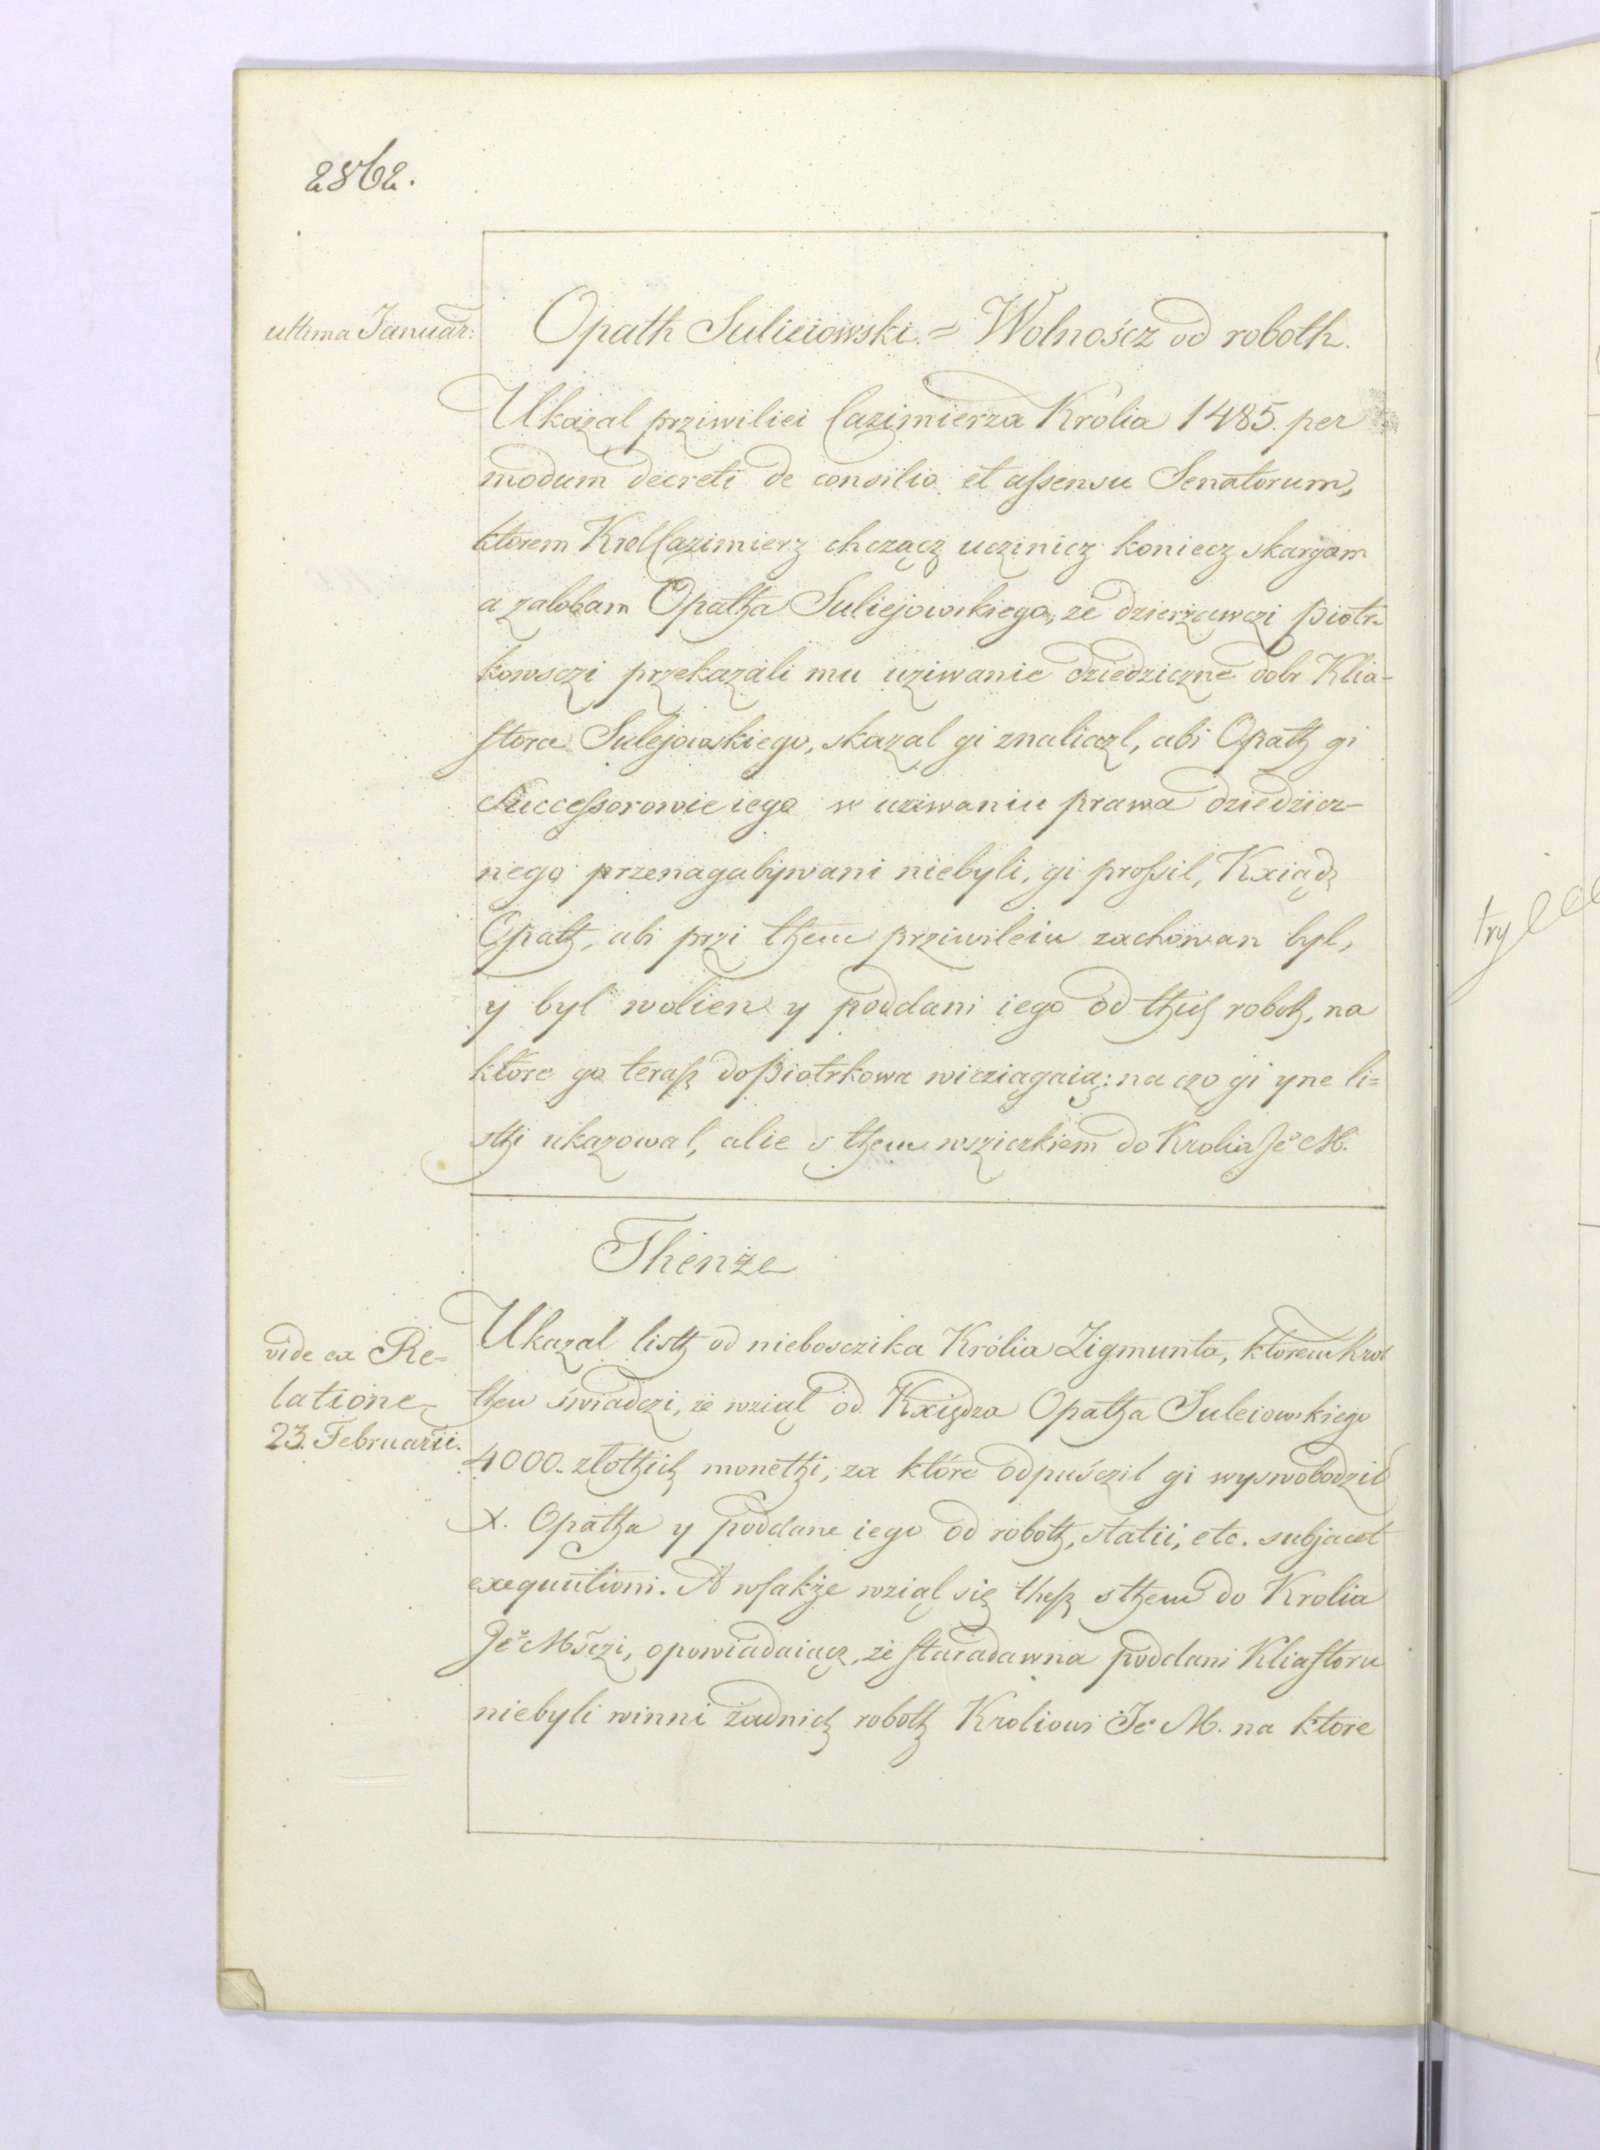 2862.
ultima Januar:
Opath Sulieiowski. = Wolnoścz od roboth.
Ukazal prziwiliei Cazimierza Królia 1485. per
modum decreti de consilio et assensu Senatorum,
ktorem Krol Cazimierz chcząncz uczinicz koniecz skargam
a zalobam Opatha Suliejowskiego, ze dzierżawczi piotr-
kowsczi przekazali mu uziwanie dziedziczne dobr Klia-
stora Sulejowskiego, skazal gi znaliazl, abi Opath gi
Successorowie iego w uziwaniu prawa dziedzicz-
nego przenagabywani niebyli, gi prossil, Kxiądz
Opath, abi przi them prziwileiu zachowan byl,
y byl wolien y poddani iego od thich roboth, na
które go terasz do Piotrkowa wicziągaią: na czo gi yne li=
sthi ukazowal, alie s them wsziczkiem do Krolia Je° M.
Thenże
vide ex Re-
latione
23. Februarii.
Ukazal listh od nieboszczika Królia Zigmunta, ktorem Krol
then świadczi, że wziąl od Kxiędza Opatha Suleiowskiego
4000. zlothich monethi, za które odpuśczil gi wyswobodzil
X. Opatha y poddane iego od roboth, statii, etc. subjacet
exequutioni. A wsakże wziąl się thesz s them do Krolia
Je° Msczi, opowiadaiącz, że staradawna poddani Kliastoru
niebyli winni żadnich roboth Kroliowi Je° M. na ktore